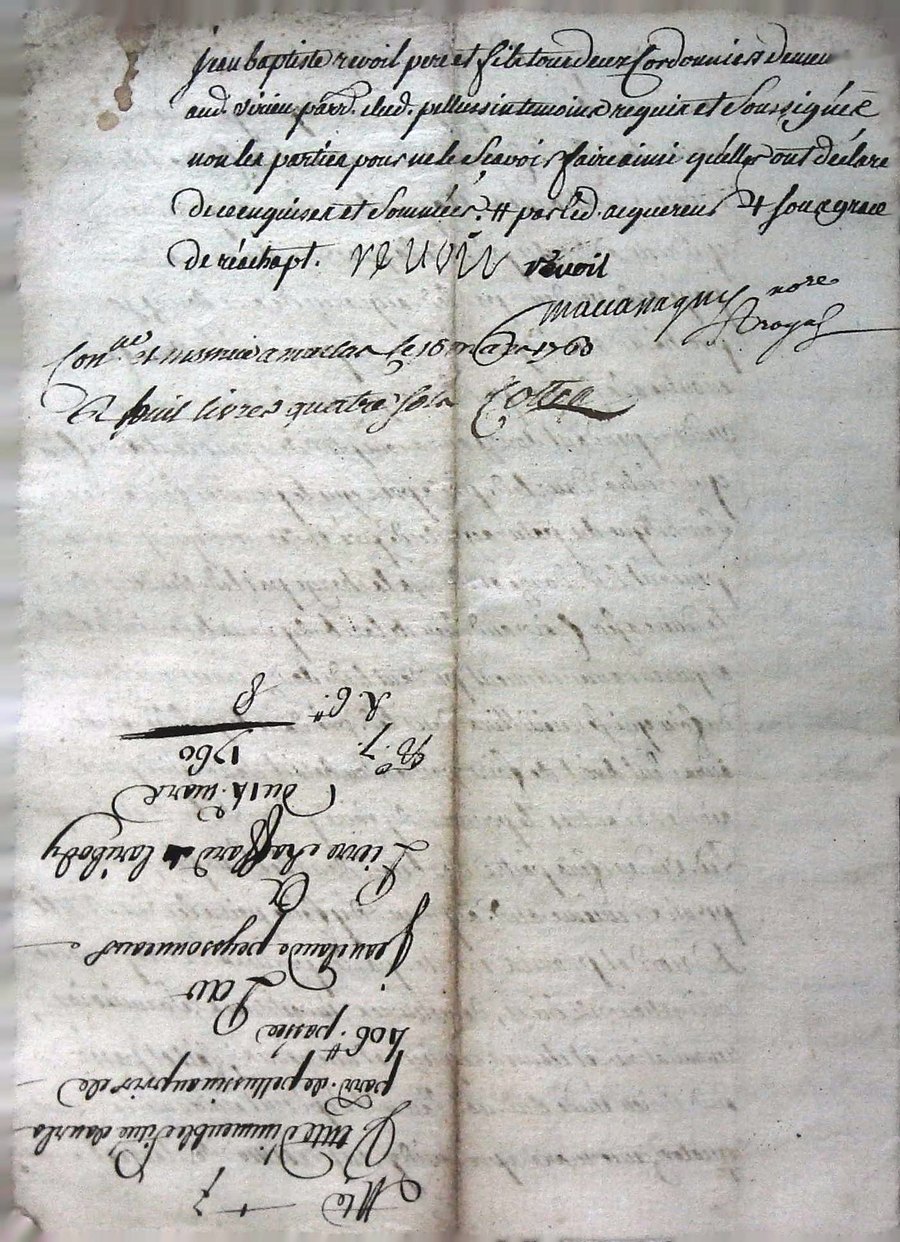 jean baptiste revoil pere et fils tous deux Cordonniers demeu
aud. virieu parr. dud. pellussin temoins requis et Soussignés
non les parties pour ne le Scavoir faire ainsi qu'elles ont déclaré
de ce enquises et Sommées. # par led. acquereur 4 sous
de réachapt. revoil revoil
mauanagny nore
royal
Con.lé et insinué a malas le 16 mars 1760
R huit livres quatre sols Cotta
Me + 7
Vente D'immeubles Situé dans la
parr. de pellussin au prix de
406.# passée
Par
Jean claude peyssonneaux
a
Pierre chaffard de laribody
du 14. mars
1760
fo. 7.
R 6.#
8